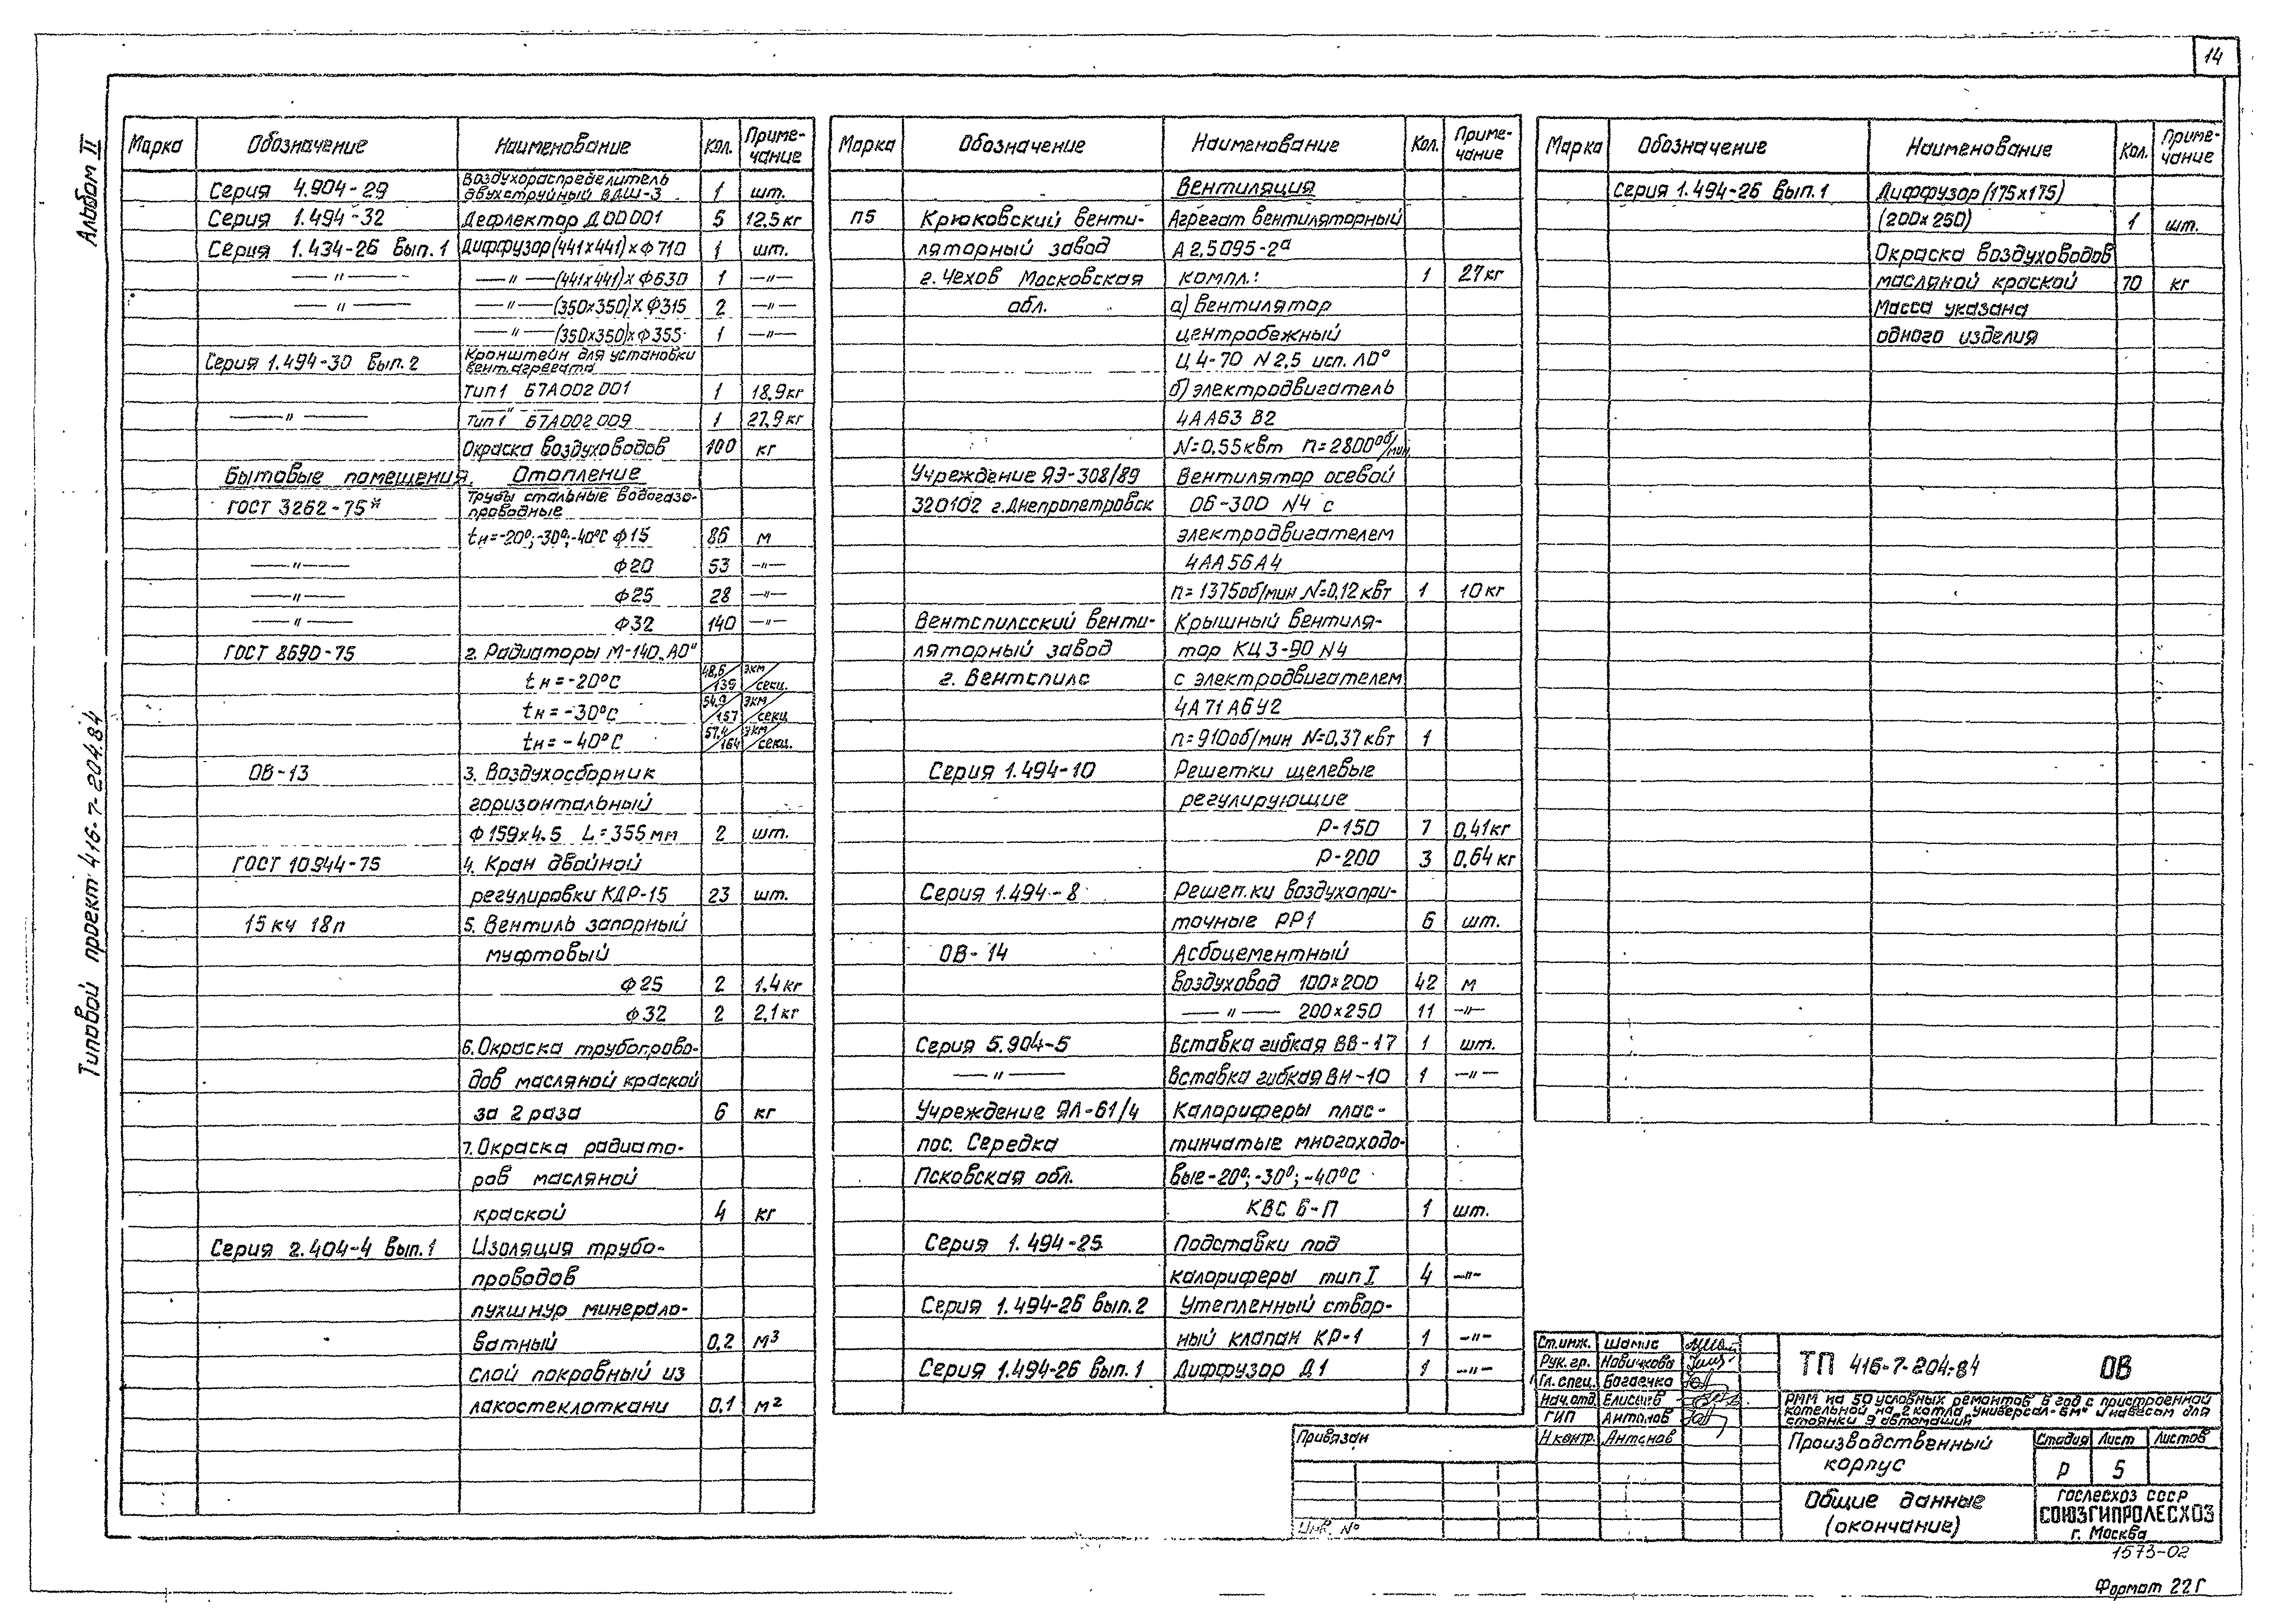 14
Альбом II
Типовой проект 416-7-204.84
Марка Обозначение Наименование Кол. Приме-
чание
Серия 4.904-29 Воздухораспределитель
двухструйный ВДШ-3 1 шт.
Серия 1.494-32 Дефлектор Д00 001 5 12.5кг
Серия 1.434-26 Вып.1 Диффузор(441х441)хФ710 1 шт.
—〃— —〃—(441х441)хФ630 1 —〃—
—〃— —〃—(350х350)хФ315 2 —〃—
—〃—(350х350)хФ355 1 —〃—
Серия 1.494-30 Вып.2 Кронштейн для установки
вент.агрегата
Тип1 Б7А002 001 1 18.9кг
—〃— Тип1 Б7А002 009 1 27.9кг
Окраска воздуховодов 100 кг
Бытовые помещения. Отопление
ГОСТ 3262-75* Трубы стальные водогазо-
проводные
tн=-20°;-30°;-40°С Ф15 86 м
—〃— Ф20 53 —〃—
—〃— Ф25 28 —〃—
—〃— Ф32 140 —〃—
ГОСТ 8690-75 2. Радиаторы М-140„АО"
tн=-20°С 48,6/139 экм/секц.
tн=-30°С 54.9/157 экм/секц
tн=-40°С 57.4/164 экм/секц.
ОВ-13 3. Воздухосборник
горизонтальный
Ф159х4.5 L=355мм 2 шт.
ГОСТ 10944-75 4. Кран двойной
регулировки КДР-15 23 шт.
15кч 18п 5. Вентиль запорный
муфтовый
Ф25 2 1.4кг
Ф32 2 2,1кг
6.Окраска трубопрово-
дов масляной краской
за 2 раза 6 кг
7.Окраска радиато-
ров масляной
краской 4 кг
Серия 2.404-4 Вып.1 Изоляция трубо-
проводов
пухшнур минерало-
ватный 0,2 м3
слой покровный из
лакостеклоткани 0,1 м2
Марка Обозначение Наименование Кол. Приме-
чание
Вентиляция
П5 Крюковский венти- Агрегат вентиляторный
ляторный завод А2,5095-2а
г. Чехов Московская компл.: 1 27кг
обл. а) вентилятор
центробежный
Ц4-70 N2,5 исп. Л0°
б) электродвигатель
4АА63 В2
N=0,55квт n=2800об/мин
Учреждение ЯЭ-308/89 Вентилятор осевой
320102 г.Днепропетровск 06-300 N4 с
электродвигателем
4АА56А4
n=1375об/мин N=0,12квт 1 10кг
Вентспилсский венти- Крышный вентиля-
ляторный завод тор КЦ3-90 N4
г. Вентспилс с электродвигателем
4А71А6У2
n=910об/мин N=0,37квт 1
Серия 1.494-10 Решетки щелевые
регулирующие
Р-150 7 0,41кг
Р-200 3 0,64кг
Серия 1.494-8 Решетки воздухопри-
точные РР1 6 шт.
ОВ-14 Асбоцементный
воздуховод 100х200 42 м
—〃— 200х250 11 —〃—
Серия 5.904-5 Вставка гибкая ВВ-17 1 шт.
—〃— Вставка гибкая ВН-10 1 —〃—
Учреждение ЯЛ-61/4 Калориферы плас-
пос. Середка тинчатые многоходо-
Псковская обл. вые-20°;-30°;-40°С
КВС 6-П 1 шт.
Серия 1.494-25 Подставки под
калориферы тип I 4 —〃—
Серия 1.494-26 Вып.2 Утепленный створ-
ный клапан КР-1 1 —〃—
Серия 1.494-26 Вып.1 Диффузор Д1 1 —〃—
Марка Обозначение Наименование Кол. Приме-
чание
Серия 1.494-26 Вып.1 Диффузор(175х175)
(200х250) 1 шт.
Окраска воздуховодов
масляной краской 70 кг
Масса указана
одного изделия
Ст.инж. Шамис
Рук.гр. Новичкова
Гл.спец. Багаечко
Нач.отд. Елисеев
ГИП Антонов
Н.контр. Антонов
ТП 416-7-204.84 ОВ
РММ на 50 условных ремонтов в год с пристроенной
котельной на 2 котла „Универсал-6М" и навесом для
стоянки 9 автомашин
Производственный
корпус
Стадия Лист Листов
Р 5
Общие данные
(окончание)
ГОСЛЕСХОЗ СССР
СОЮЗГИПРОЛЕСХОЗ
г. Москва
Привязан
Инв. №
1573-02
Формат 22Г